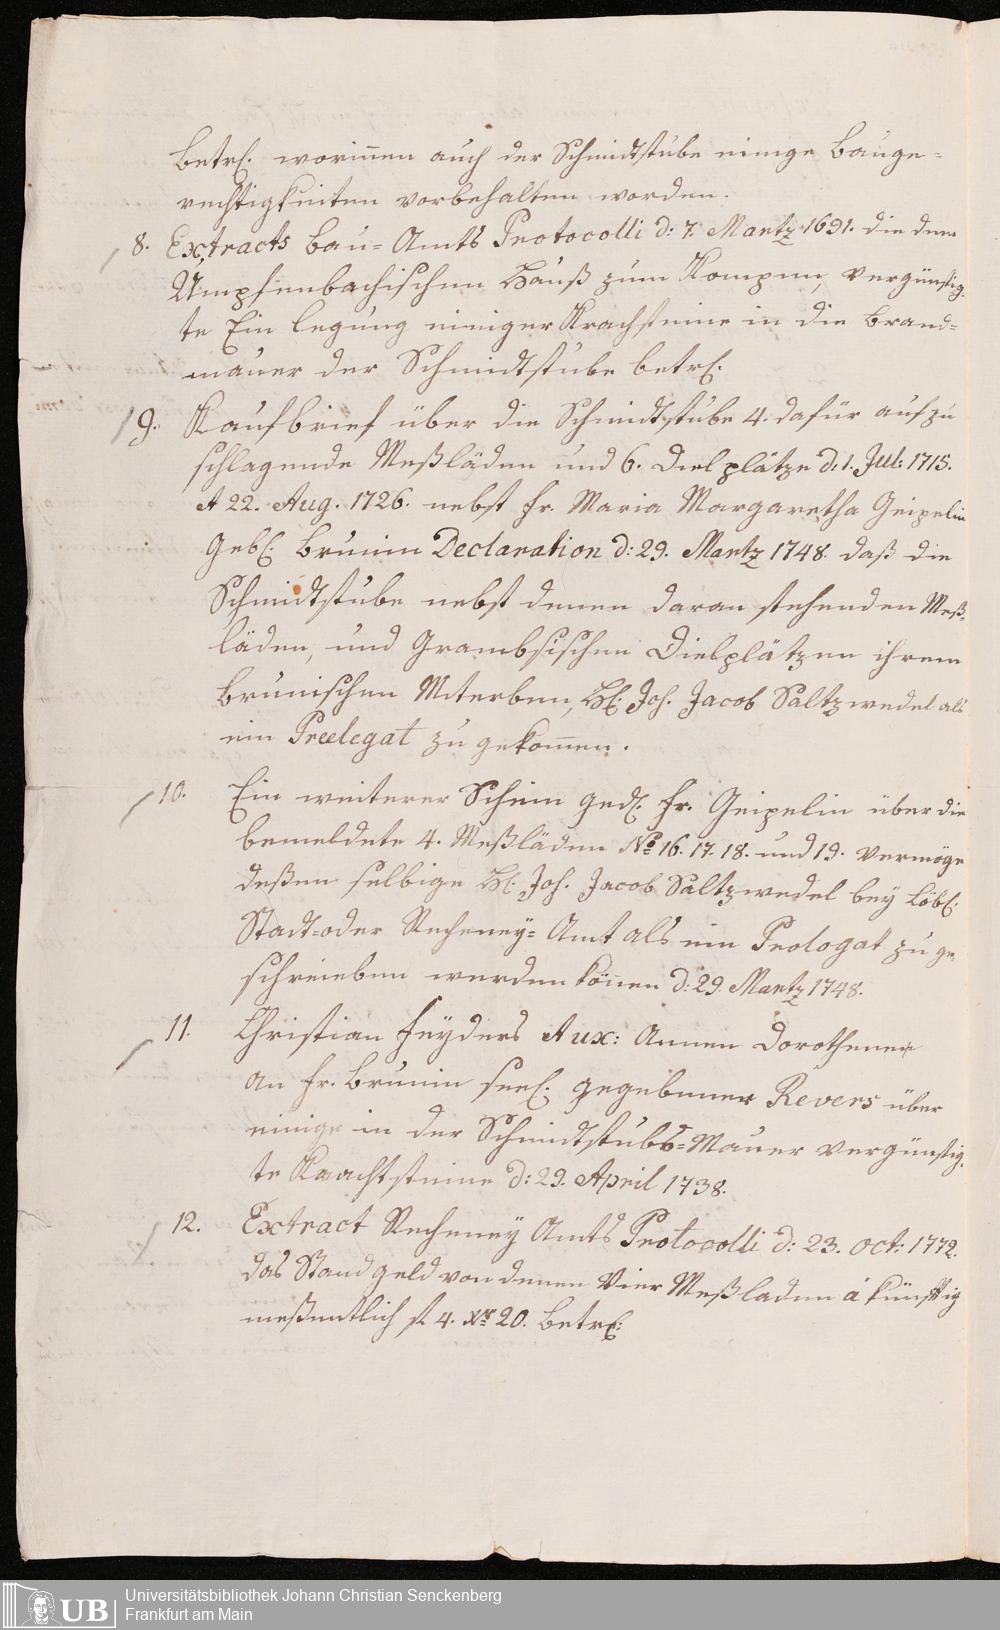 betrf. worinnen auch der Schmidtstube einige Bauge=
rechtigkeiten vorbehalten worden.
8. Extracts Bau=Amts Protocolli d: 7. Martz 1691. die dem
Umpfenbachischen Hauß zum Kompen, vergünstig=
te Ein legung einiger Krachsteine in die Brand=
mauer der Schmidtstube betrf.
9. Kaufbrief über die Schmidtstube 4. dafür auf zu
schlagende Meßläden und 6. Dielplätze d. 1. Jul: 1715.
et 22. Aug. 1726. nebst Fr. Maria Margaretha Geipelin
gebl. Brunin Declaration d: 29. Martz 1748. daß die
Schmidtstube nebst denen daran stehenden Meß=
läden, und Grambsischen Dielplätzen ihrem
Brunischen Miterben, Hl. Joh. Jacob Saltzwedel als
ein Preelegat zu gekommen.
10. Ein weiterer Schein ged. Fr. Geipelin über die
bemeldete 4. Meßläden No 16. 17. 18. und 19. vermöge
deßen selbige Hl. Joh. Jacob Saltzwedel bey Löbl.
Stadt=oder Recheney=Amt als ein Prologat zu ge=
schrieben werden können d: 29. Martz 1748.
11. Christian Feyders et ux: Annen Dorotheen
an Fr. Brunin seel. gegebener Revers über
einige in der Schmidtstubs=Mauer vergünstig=
te Krachtsteine d: 29. April 1738.
12. Extract Recheney Amts Protocolli d: 23. Oct: 1772.
das Stand geld von denen Vier Meßladen á künfftig
meßentlich fl 4. xr 20. betrf:
UB Universitätsbibliothek Johann Christian Senckenberg
Frankfurt am Main